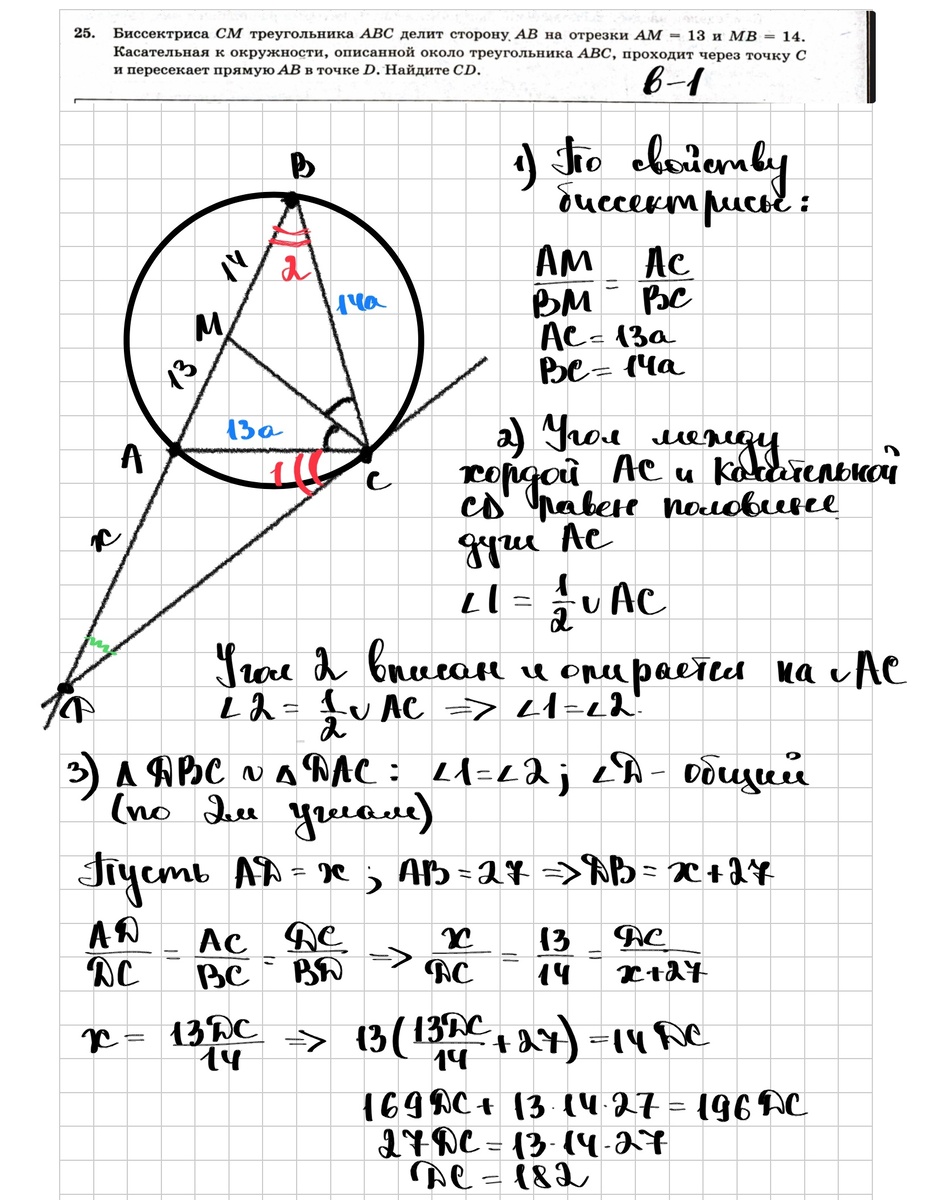 25. Биссектриса CM треугольника ABC делит сторону AB на отрезки AM = 13 и MB = 14.
Касательная к окружности, описанной около треугольника ABC, проходит через точку C
и пересекает прямую AB в точке D. Найдите CD.
в-1
B
14
2
14a
M
13
13a
A
1
C
x
D
1) По свойству
биссектрисы:
AM/BM = AC/BC
AC = 13a
BC = 14a
2) Угол между
хордой AC и касательной
CD равен половине
дуги AC
∠1 = 1/2 ∪ AC
Угол 2 вписан и опирается на ∪AC
∠2 = 1/2 ∪ AC => ∠1=∠2.
3) △ DBC ~ △ DAC: ∠1=∠2; ∠D - общий
(по 2м углам)
Пусть AD = x ; AB = 27 => DB = x+27
AD/DC = AC/BC = DC/BD => x/DC = 13/14 = DC/x+27
x = 13DC/14 => 13(13DC/14 + 27) = 14DC
169DC + 13·14·27 = 196DC
27DC = 13·14·27
DC = 182